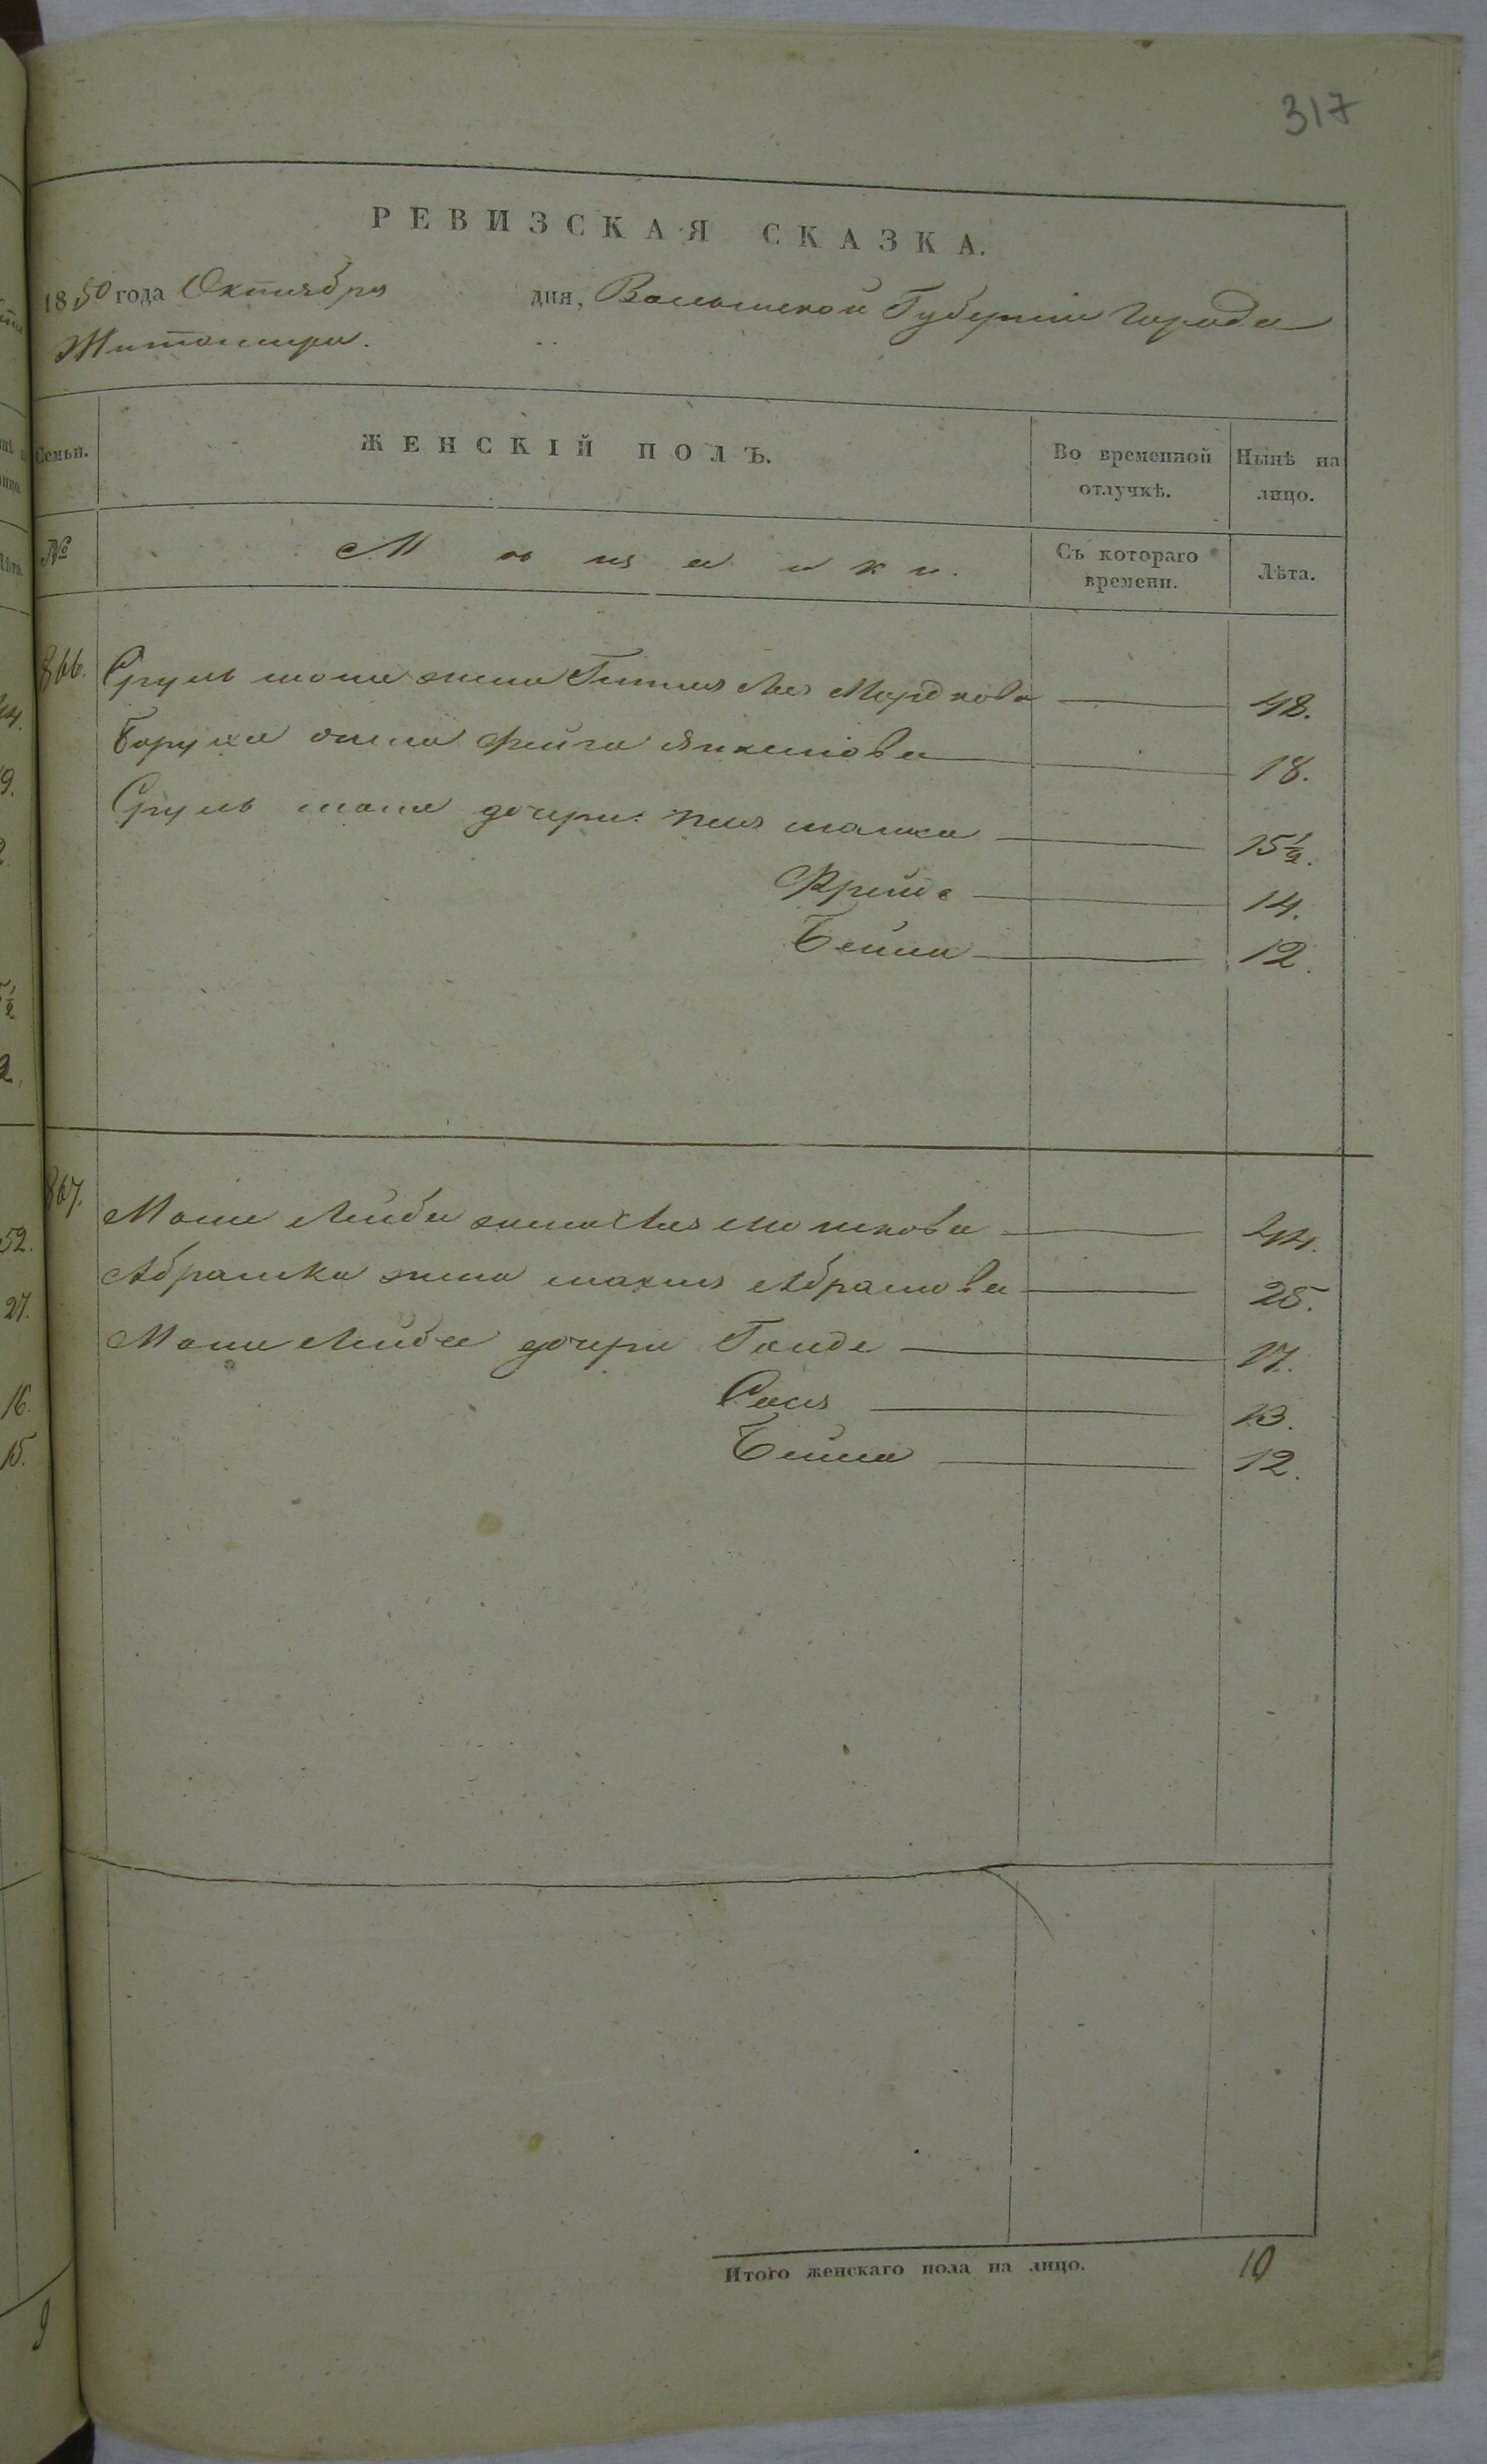 317
РЕВИЗСКАЯ СКАЗКА.
1850 года Октября дня, Волынской Губернии Города
Житомира.
Семьи. ЖЕНСКІЙ ПОЛЪ. Во временной отлучкѣ. Нынѣ на лицо.
№ Мѣщанки. Съ котораго времени. Лѣта.
866. Сруль жена Лея Мордкова 48.
Боруха жена Фейга Янкелова 18.
Сруль дочери 15½.
Фрейда 14.
Бейла 12.
867. Моше Лейбы жена Лея 44.
Абрамка жена Абрамова 25.
Моше Лейбы дочери 17.
Сося 13.
Бейла 12.
Итого женскаго пола на лицо. 10
52.
27.
16.
15.
9